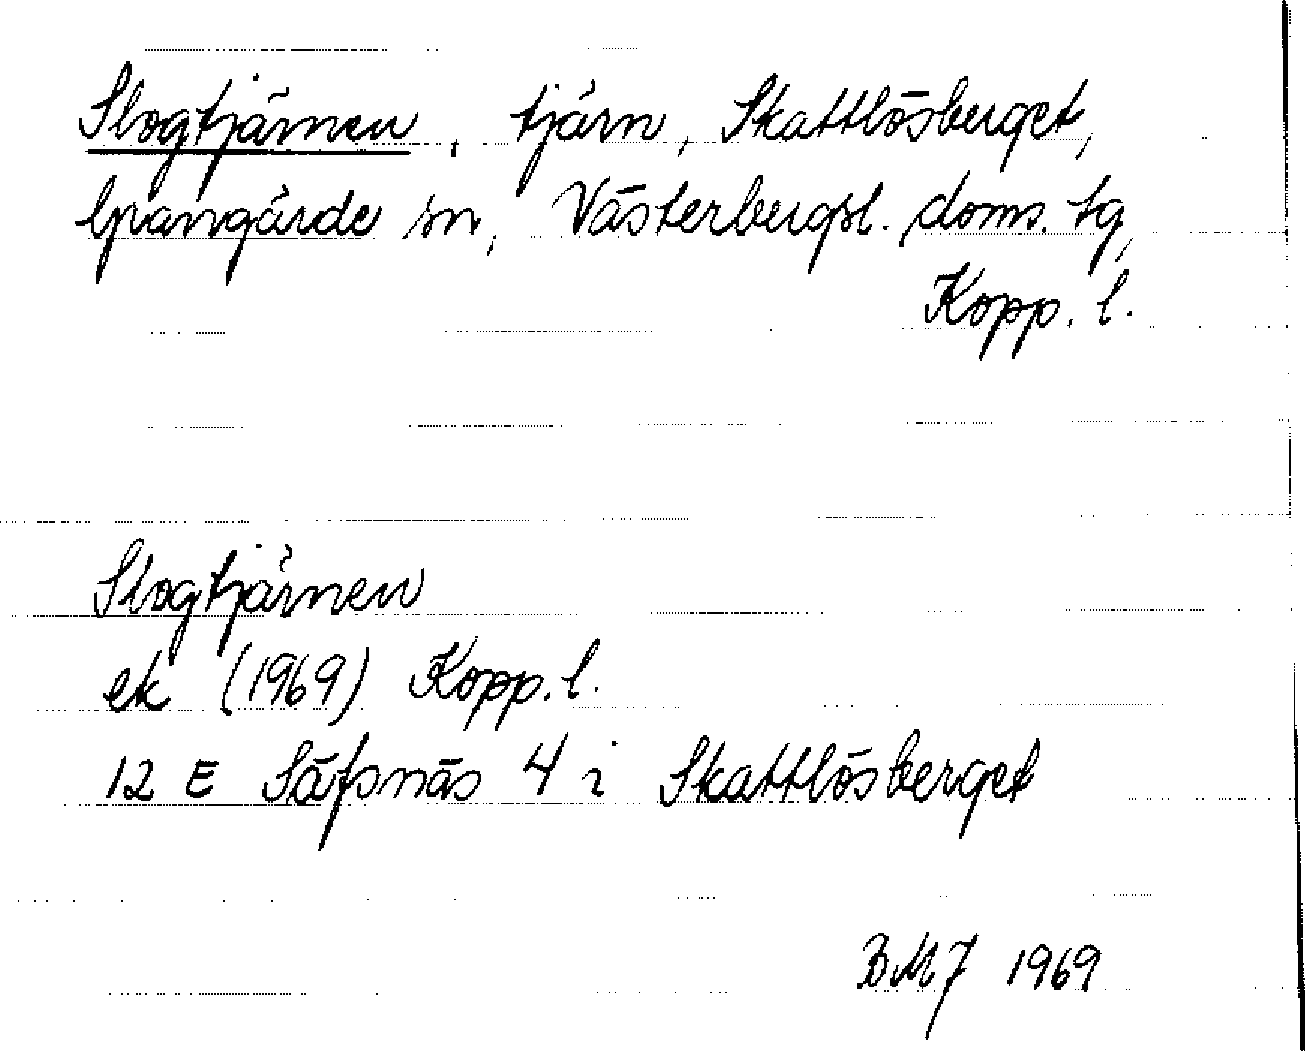 Slogtjärnen, tjärn, Skattlösberget,
Grangärde sn, Västerbergsl. doms. tg,
Kopp. l.
Slogtjärnen
ek (1969) Kopp. l.
12 E Säfsnäs 4 i Skattlösberget
BMJ 1969